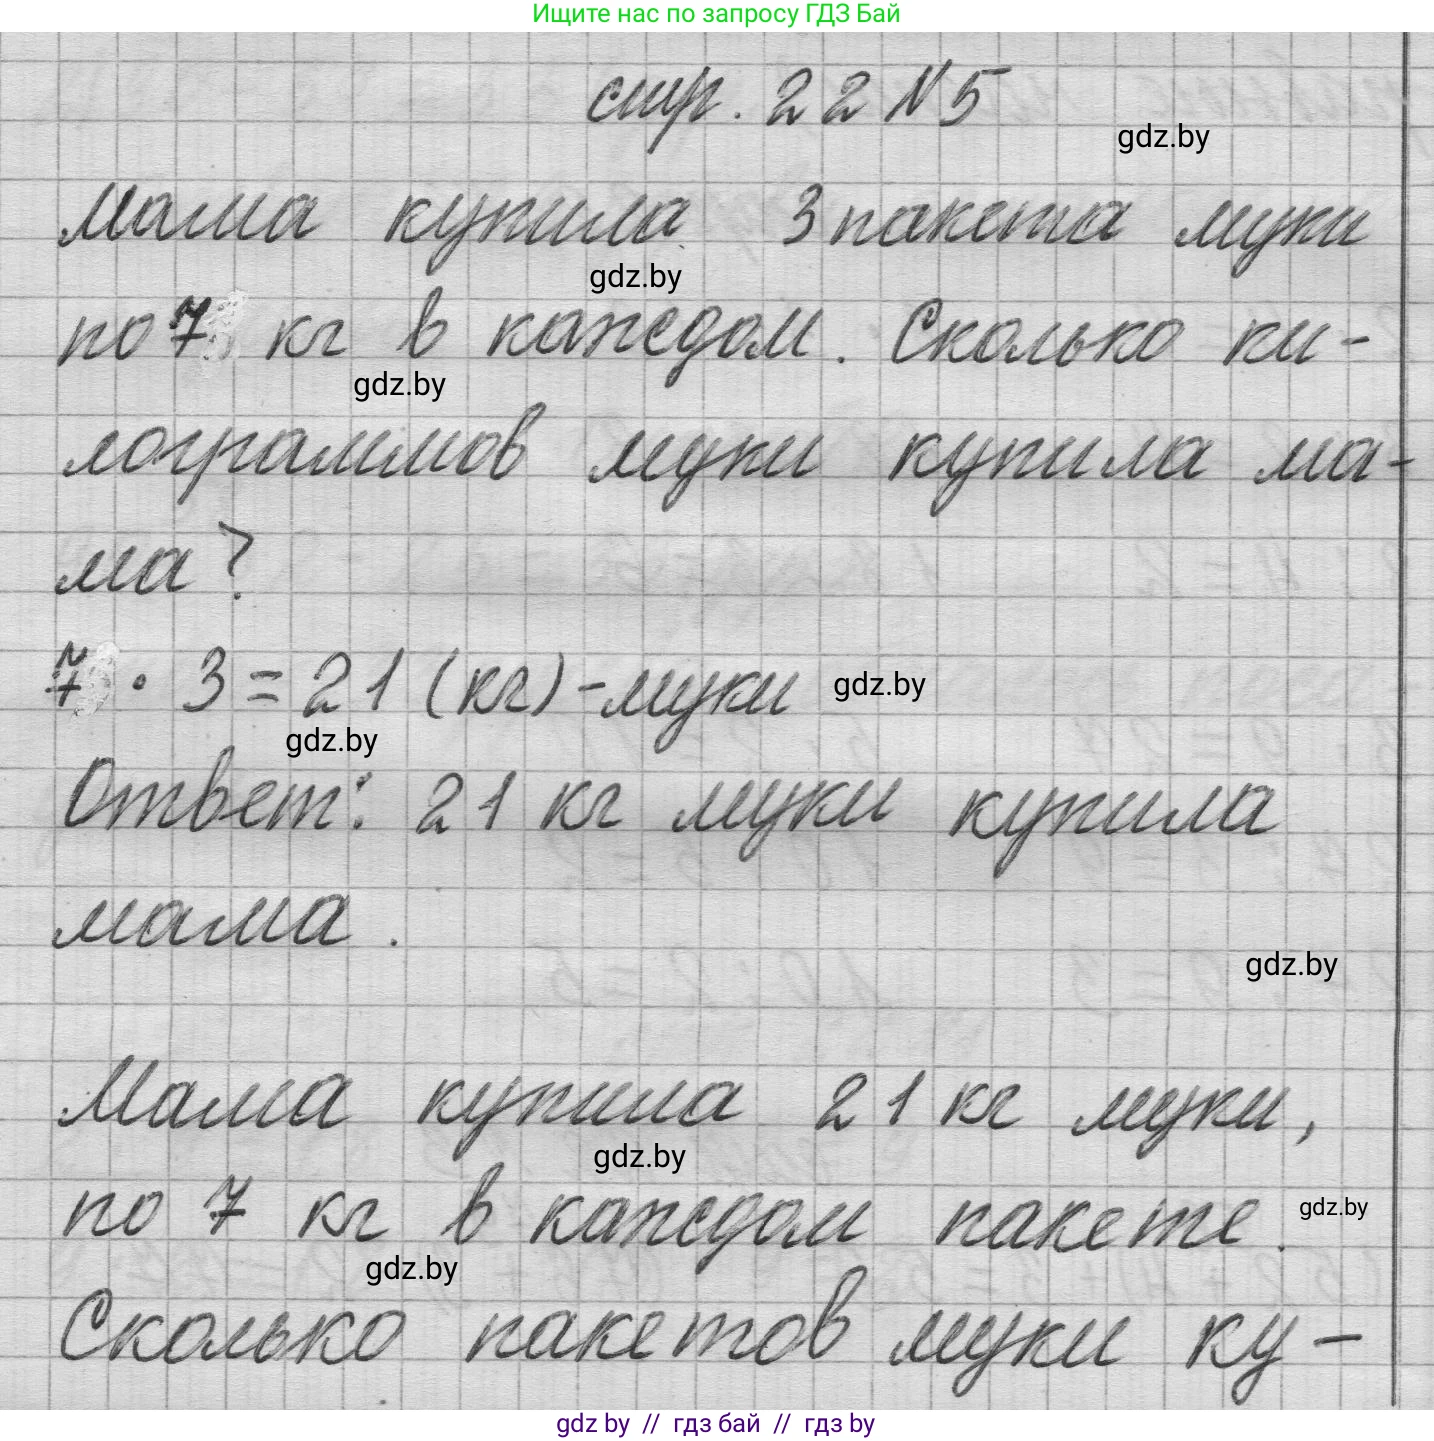 Ищите нас по запросу ГДЗ Бай
стр. 22 N 5
gdz.by
Мама купила 3 пакета муки
gdz.by
по 7 кг в каждом. Сколько ки-
gdz.by
лограммов муки купила ма-
ма?
7 · 3 = 21 (кг) - муки
gdz.by
gdz.by
Ответ: 21 кг муки купила
мама.
gdz.by
Мама купила 21 кг муки,
gdz.by
по 7 кг в каждом пакете.
gdz.by
gdz.by
Сколько пакетов муки ку-
gdz by // гдз бай // гдз by